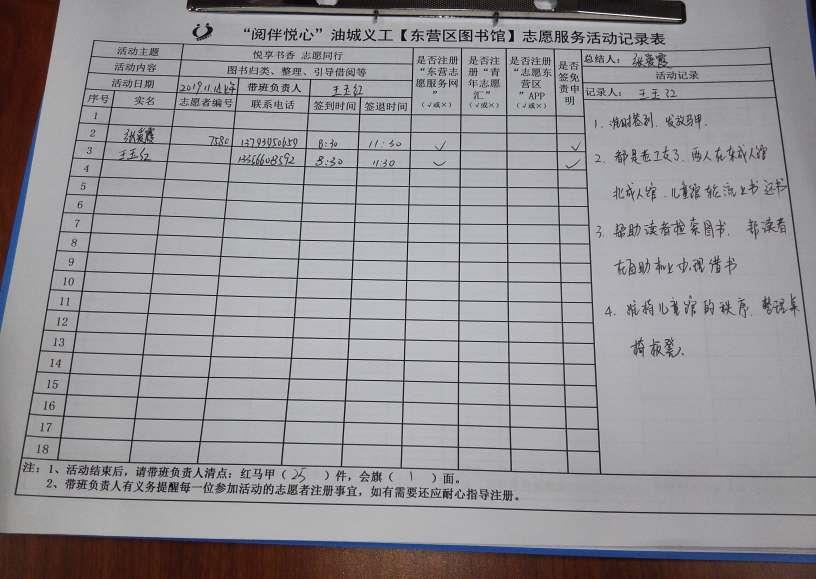 “阅伴悦心”油城义工【东营区图书馆】志愿服务活动记录表
活动主题 悦享书香 志愿同行
活动内容 图书归类、整理、引导借阅等
活动日期 2019.11. 带班负责人 王玉红
序号 实名 志愿者编号 联系电话 签到时间 签退时间 是否注册“东营志愿服务网”(√或×) 是否注册“青年志愿汇”(√或×) 是否注册“志愿东营区”APP(√或×) 是否签免责申明
总结人：张爱霞
活动记录
记录人：王玉红
1
2 张爱霞 7580 13793950659 8:30 11:30 √ √
3 王玉红 13356608592 8:30 11:30 √ √
4
5
6
7
8
9
10
11
12
13
14
15
16
17
18
1、准时签到、发放马甲.
2、都是老义工了、两人在东成人馆
北成人馆、儿童馆轮流上书还书
3、帮助读者检索图书、帮读者
在自助机上办理借书
4、维持儿童馆的秩序、整理桌
椅板凳、
注：1、活动结束后，请带班负责人清点：红马甲（25）件，会旗（1）面。
2、带班负责人有义务提醒每一位参加活动的志愿者注册事宜，如有需要还应耐心指导注册。